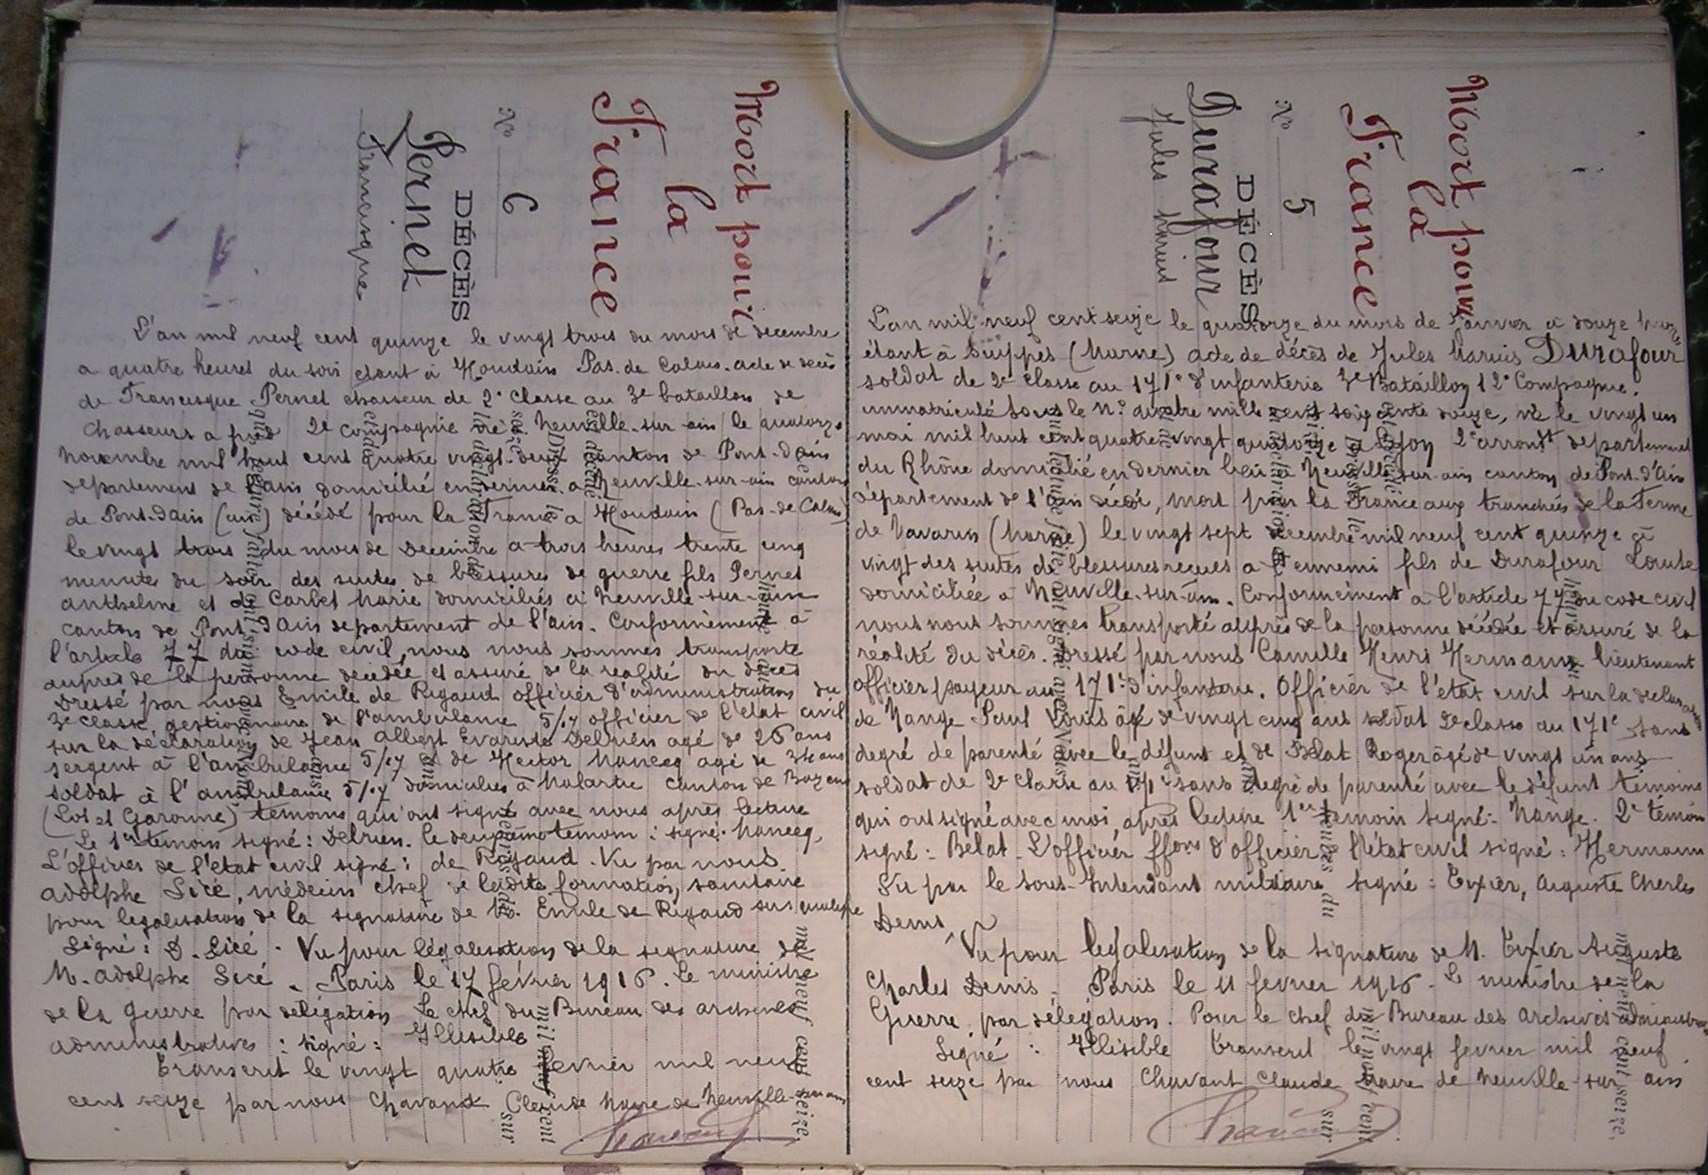 Mort pour
la
France
N° 6
DÉCÈS
Pernet
Francisque
L'an mil neuf cent quinze le vingt trois du mois de decembre
a quatre heures du soir etant à Houdain Pas-de Calais acte de décès
de Francisque Pernet chasseur de 2e classe au 3e bataillon de
chasseurs a pied 2e compagnie né à Neuville-sur-ain le quatorze
novembre mil huit cent quatre vingt-deux canton de Pont-d'ain
departement de l'ain domicilié en dernier a Neuville-sur-ain canton
de Pont-d'ain (ain) décédé pour la France a Houdain (Pas-de Calais)
le vingt trois du mois de decembre a trois heures trente cinq
minutes du soir des suites de blessures de guerre fils Pernet
anthelme et de Carbet Marie domiciliés à Neuville-sur-ain
canton de Pont d'Ain departement de l'ain. Conformément à
l'article 77 du code civil, nous nous sommes transporté
aupres de la personne décédée et assuré de la réalité du décès
Dressé par nous Emile de Rigaud officier d'administration de
3e classe gestionnaire de l'ambulance 5/17 officier de l'état civil
sur la déclaration de Jean Albert Evariste Delrieu agé de 26 ans
sergent à l'ambulance 5/17 et de Hector Manecq agé de ans
soldat à l'ambulance 5/17 domiciliés à canton de
(Lot et Garonne) temoins qui ont signé avec nous après lecture
Le 1er temoin signé : Delrieu. le deuxieme temoin : signé. Manecq.
L'officier de l'état civil signé : de Rigaud. Vu par nous
Adolphe Sicé, médecin chef de ladite formation sanitaire
pour legalisation de la signature de M. Emile de Rigaud
Signé : D. Sicé. Vu pour légalisation de la signature de
M. Adolphe Sicé. Paris le 17 février 1916. Le ministre
de la Guerre par délégation Le chef du Bureau des archives
administratives : signé : Illisible
Transcrit le vingt quatre fevrier mil neuf
cent seize par nous Chavant Claude Maire de Neuville-sur-ain
Mort pour
la
France
N° 5
DÉCÈS
Durafour
Jules Marius
L'an mil neuf cent seize le quatorze du mois de Janvier à douze heures
étant à Suippes (Marne) acte de décès de Jules Marius Durafour
soldat de 2e classe au 171e d'infanterie 3e Bataillon 12e Compagnie.
immatriculé sous le N° quatre mille cent soixante douze, né le vingt un
mai mil huit cent quatre vingt quatorze à Lyon 2e arront departement
du Rhône domicilié en dernier lieu à Neuville-sur-ain canton de Pont-d'Ain
département de l'Ain décédé, mort pour la France aux tranchées de la Ferme
de Navarin (Marne) le vingt sept decembre mil neuf cent quinze à
vingt des suites de blessures reçues a l'ennemi fils de Durafour Louise
domiciliée à Neuville-sur-ain. Conformément a l'article 77 du code civil
nous nous sommes transporté auprès de la personne décédée et assuré de la
réalité du décès. Dressé par nous Camille Henri Hermann lieutenant
officier payeur au 171e d'infanterie. Officier de l'état civil sur la declaration
de Mange Paul Louis âgé de vingt cinq ans soldat 2e classe au 171e sans
degré de parenté avec le défunt et de Belat Roger âgé de vingt un ans
soldat de 2e classe au 171e sans degré de parenté avec le défunt témoins
qui ont signé avec moi après lecture 1er temoin signé : Mange. 2e temoin
signé : Belat. L'officier ffons d'officier de l'état civil signé : Hermann
Vu par le Sous-Intendant militaire signé : Tixier, Auguste Charles
Denis
Vu pour legalisation de la signature de M. Tixier Auguste
Charles Denis. Paris le 11 fevrier 1916. Le ministre de la
Guerre, par délégation. Pour le chef du Bureau des Archives administratives
Signé : Illisible Transcrit le vingt fevrier mil neuf
cent seize par nous Chavant Claude Maire de Neuville-sur-ain